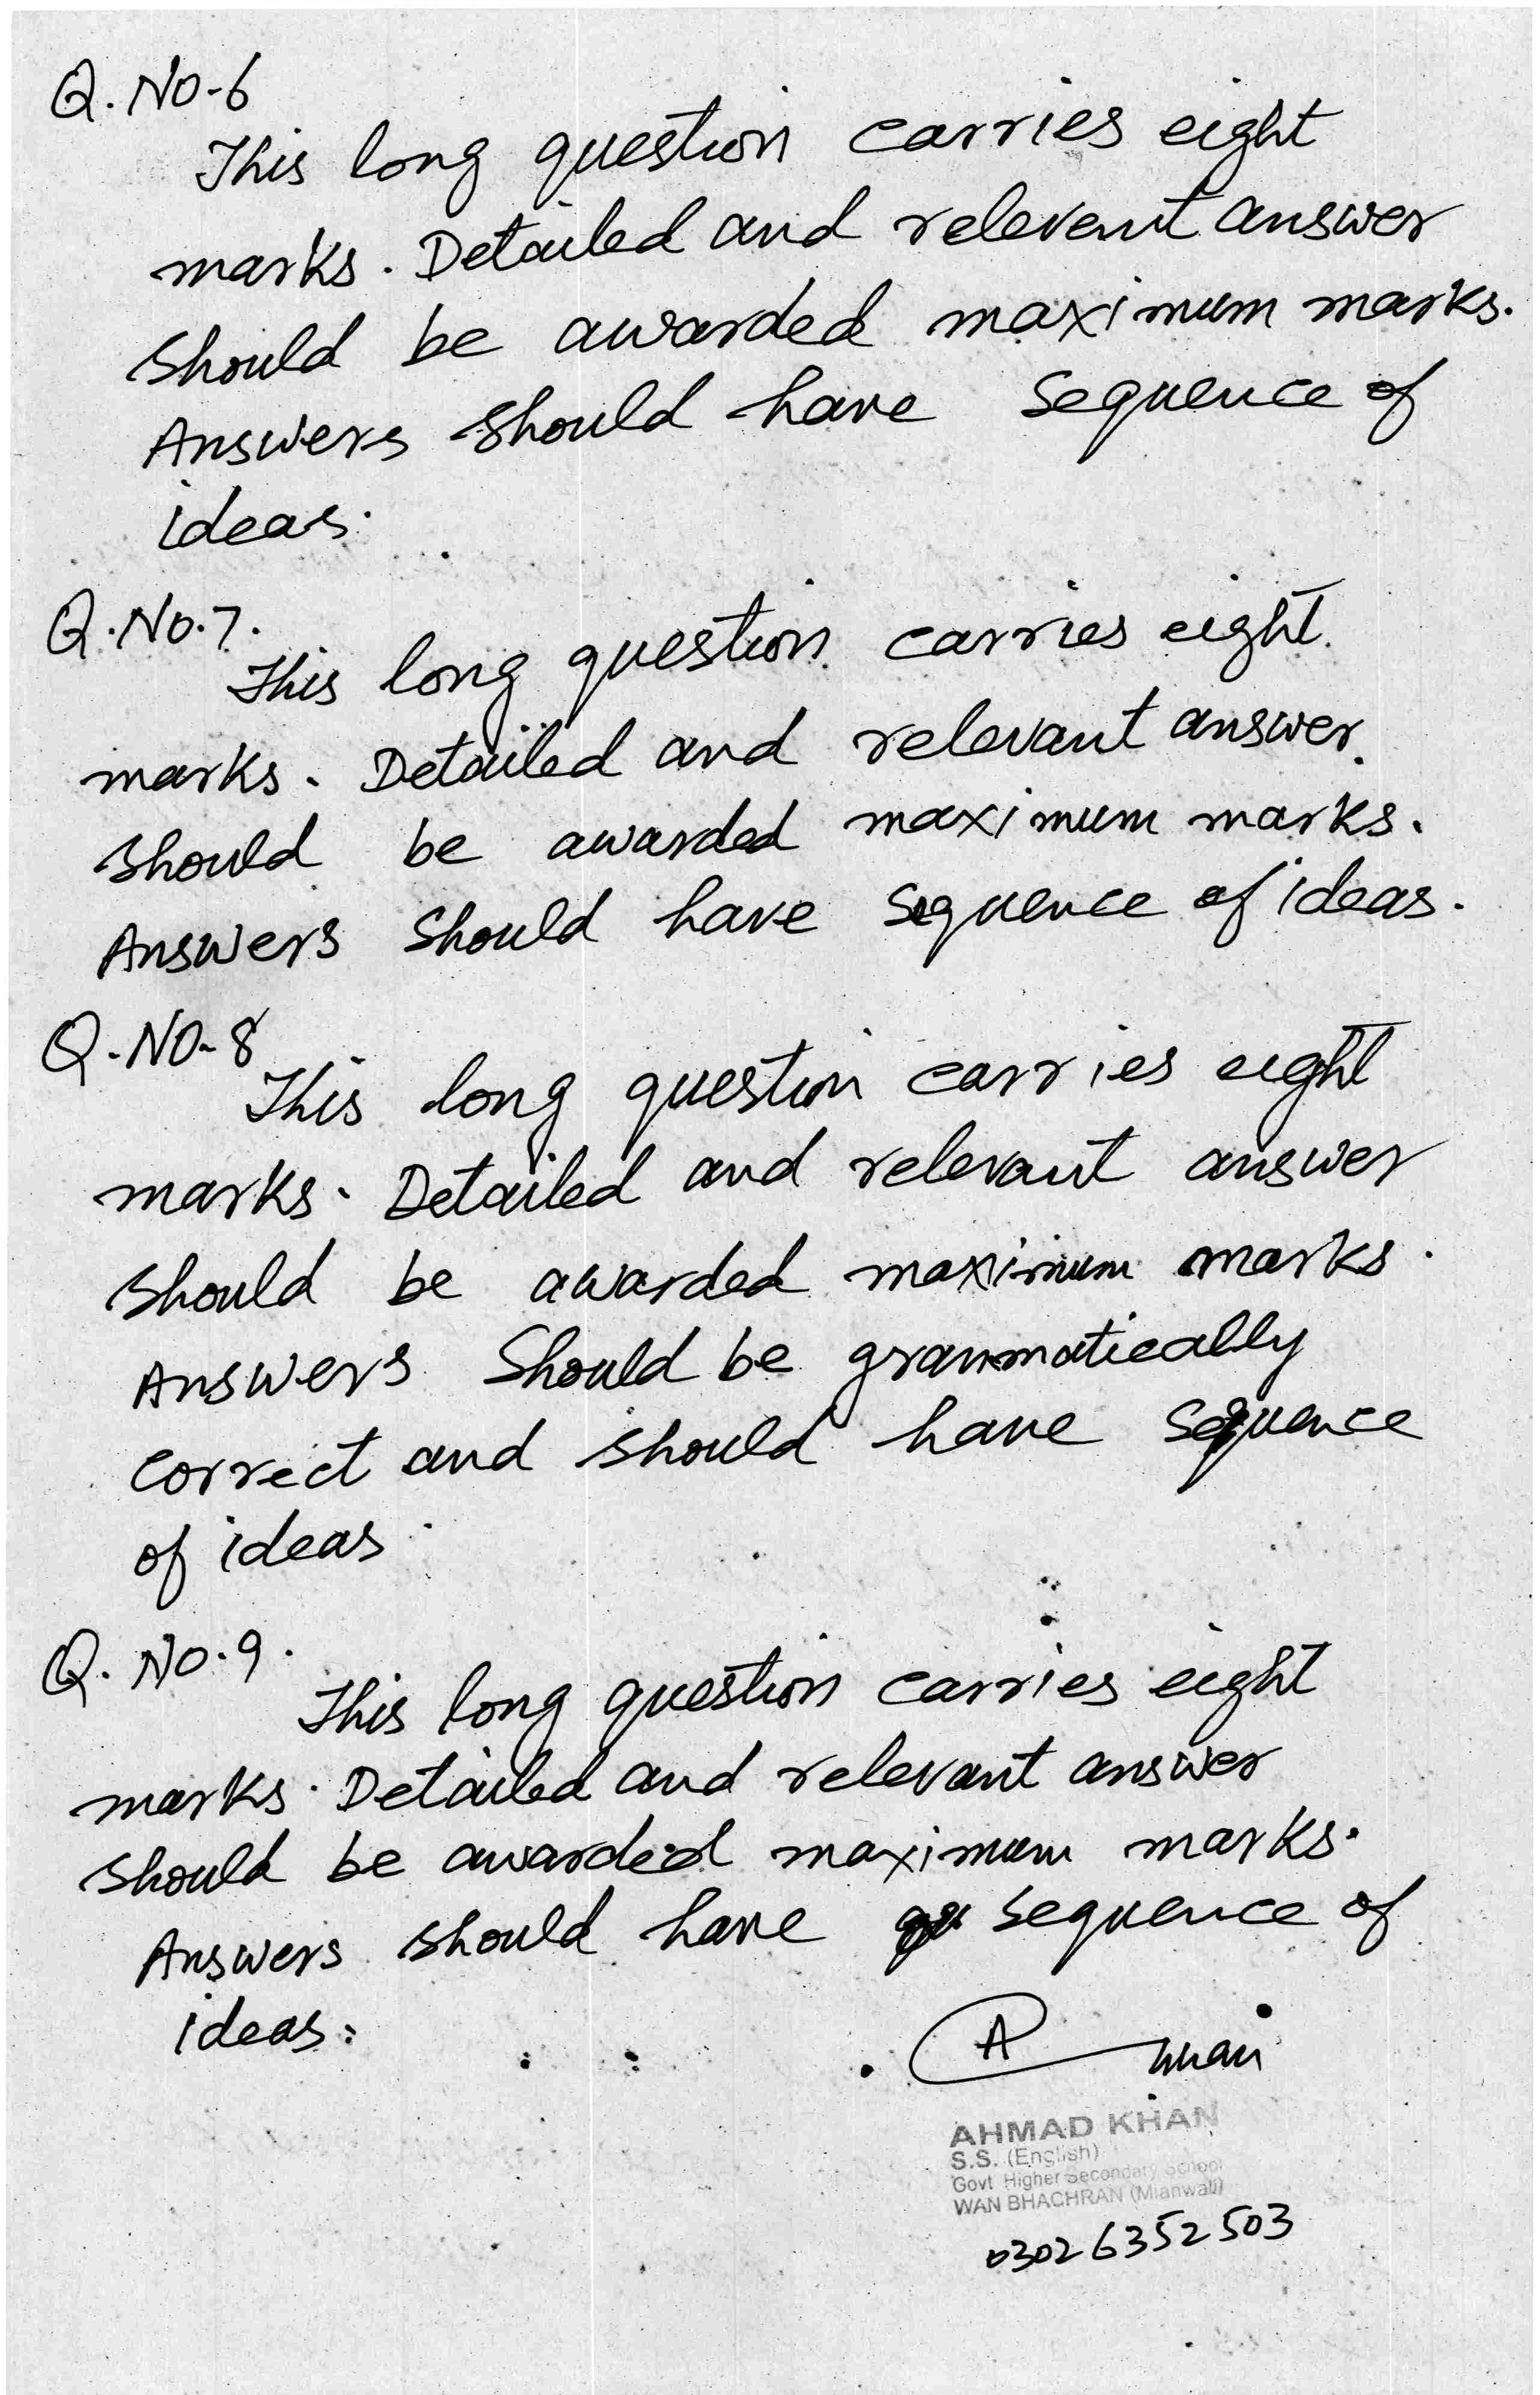 Q. No-6
This long question carries eight
marks. Detailed and relevent answer
should be awarded maximum marks.
Answers should have sequence of
ideas.
Q. No. 7.
This long question carries eight
marks. Detailed and relevant answer.
should be awarded maximum marks.
Answers should have sequence of ideas.
Q. No-8
This long question carries eight
marks. Detailed and relevant answer
should be awarded maximum marks.
Answers should be grammatically
correct and should have sequence
of ideas.
Q. No. 9.
This long question carries eight
marks. Detailed and relevant answer
should be awarded maximum marks.
Answers should have sequence of
ideas.
AHMAD KHAN
S.S. (English)
Govt Higher Secondary School
WAN BHACHRAN (Mianwali)
03026352503